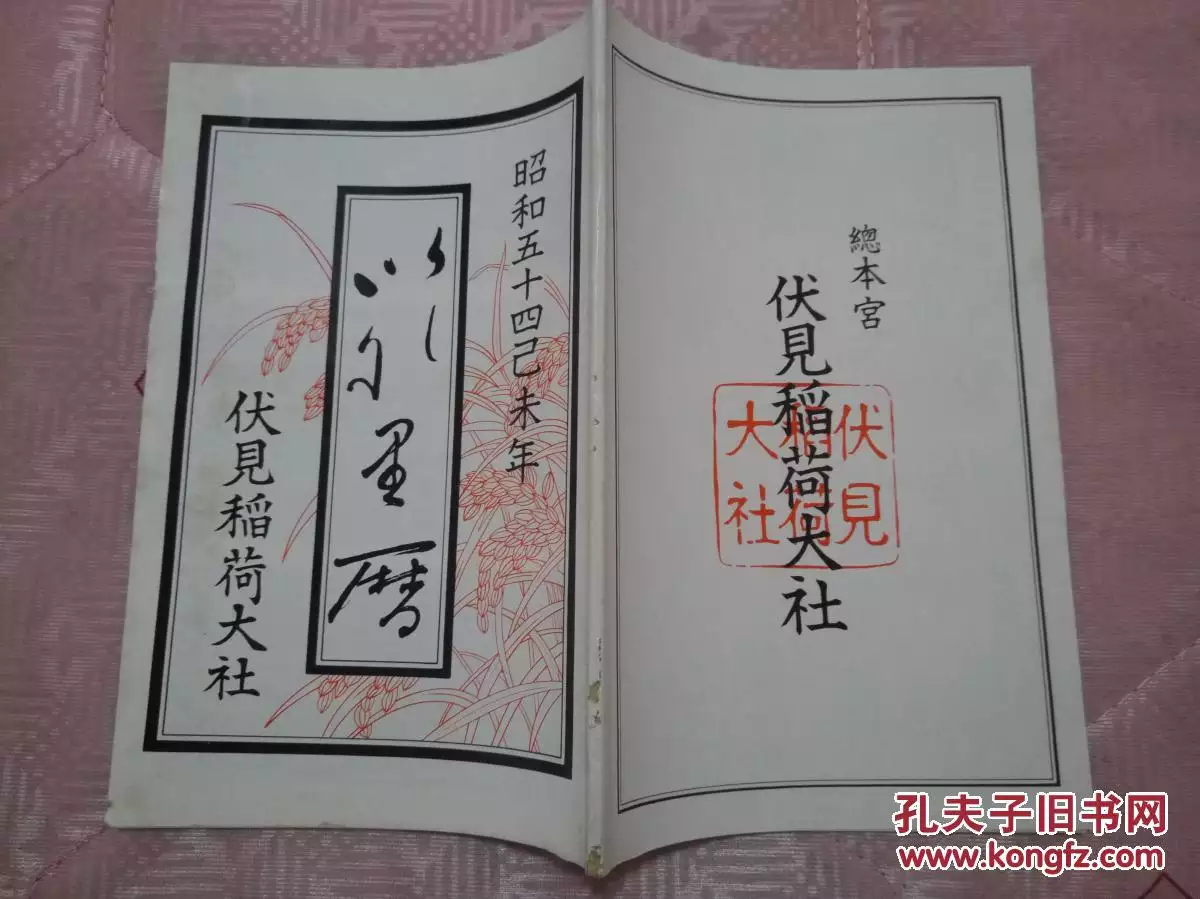 昭和五十四己未年
里暦
伏見稲荷大社
總本宮
伏見稲荷大社
伏見
稲荷
大社
孔夫子旧书网
www.kongfz.com